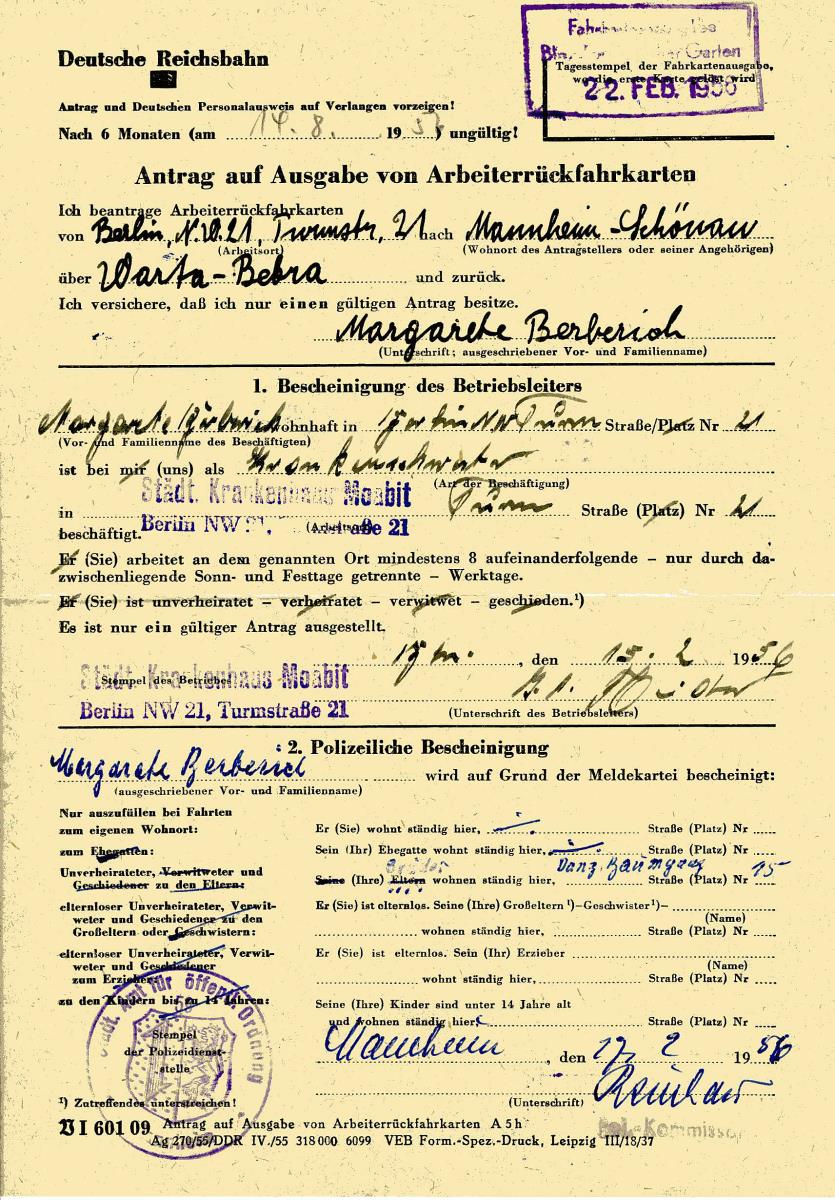 Deutsche Reichsbahn
Garten
Tagesstempel der Fahrkartenausgabe,
wo die erste Karte gelöst wird
22. FEB. 1956
Antrag und Deutschen Personalausweis auf Verlangen vorzeigen!
Nach 6 Monaten (am 14. 8. 1956) ungültig!
Antrag auf Ausgabe von Arbeiterrückfahrkarten
Ich beantrage Arbeiterrückfahrkarten
von Berlin, N.W.21, Turmstr, 21 nach Mannheim-Schönau
(Arbeitsort) (Wohnort des Antragstellers oder seiner Angehörigen)
über Warta-Bebra und zurück.
Ich versichere, daß ich nur einen gültigen Antrag besitze.
Margarete Berberich
(Unterschrift; ausgeschriebener Vor- und Familienname)
1. Bescheinigung des Betriebsleiters
Margarete Berberich wohnhaft in Berlin NW Turm Straße/Platz Nr 21
(Vor- und Familienname des Beschäftigten)
ist bei mir (uns) als Krankenschwester
(Art der Beschäftigung)
Städt. Krankenhaus Moabit
in Turm Straße (Platz) Nr 21
Berlin NW 21, Turmstraße 21
(Arbeitsort)
beschäftigt.
Er (Sie) arbeitet an dem genannten Ort mindestens 8 aufeinanderfolgende – nur durch da-
zwischenliegende Sonn- und Festtage getrennte – Werktage.
Er (Sie) ist unverheiratet – verheiratet – verwitwet – geschieden.¹)
Es ist nur ein gültiger Antrag ausgestellt.
Bln. , den 15. 2 1956
Städt. Krankenhaus Moabit
Stempel des Betriebes
Berlin NW 21, Turmstraße 21
(Unterschrift des Betriebsleiters)
2. Polizeiliche Bescheinigung
Margarete Berberich wird auf Grund der Meldekartei bescheinigt:
(ausgeschriebener Vor- und Familienname)
Nur auszufüllen bei Fahrten
zum eigenen Wohnort: Er (Sie) wohnt ständig hier, Straße (Platz) Nr
zum Ehegatten: Sein (Ihr) Ehegatte wohnt ständig hier, Straße (Platz) Nr
Bruder Danz. Baumgang
Unverheirateter, Verwitweter und
Geschiedener zu den Eltern: Seine (Ihre) Eltern wohnen ständig hier, Straße (Platz) Nr 15
elternloser Unverheirateter, Verwit-
weter und Geschiedener zu den
Großeltern oder Geschwistern: Er (Sie) ist elternlos. Seine (Ihre) Großeltern ¹)–Geschwister¹)–
(Name)
wohnen ständig hier, Straße (Platz) Nr
elternloser Unverheirateter, Verwit-
weter und Geschiedener
zum Erzieher: Er (Sie) ist elternlos. Sein (Ihr) Erzieher
(Name)
wohnt ständig hier, Straße (Platz) Nr
zu den Kindern bis zu 14 Jahren: Seine (Ihre) Kinder sind unter 14 Jahre alt
und wohnen ständig hier, Straße (Platz) Nr
Städt. Amt für öffentl. Ordnung
Stempel
der Polizeidienst-
stelle
Mannheim , den 17. 2 1956
(Unterschrift)
Pol.-Kommissar
¹) Zutreffendes unterstreichen!
VI 601 09 Antrag auf Ausgabe von Arbeiterrückfahrkarten A 5 h
Ag 270/55/DDR IV./55 318 000 6099 VEB Form.-Spez.-Druck, Leipzig III/18/37